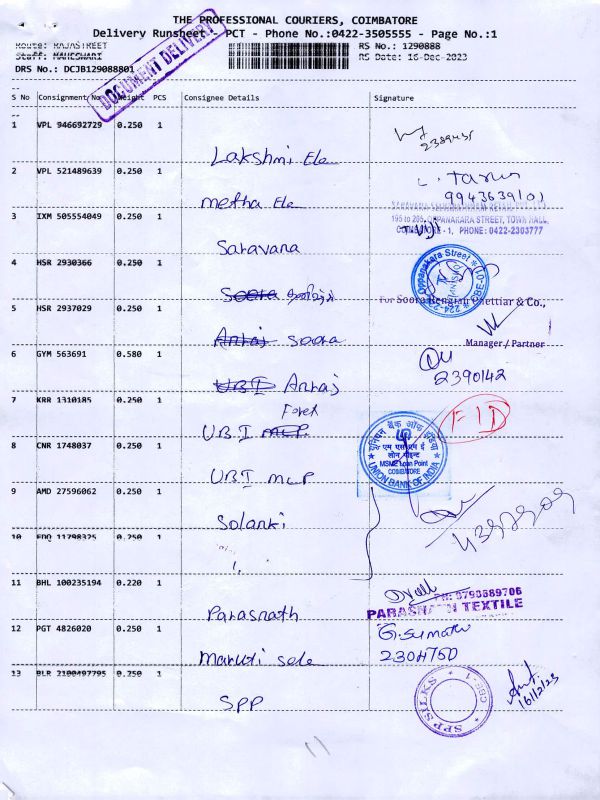 THE PROFESSIONAL COURIERS, COIMBATORE
Delivery Runsheet - PCT - Phone No.:0422-3505555 - Page No.:1
Route: RAJASTREET
RS No.: 1290888
Staff: MAHESWARI
RS Date: 16-Dec-2023
DRS No.: DCJB129088801
DOCUMENT DELIVERY
S No Consignment/No Weight PCS Consignee Details Signature
1 VPL 946692729 0.250 1
Lakshmi Ele
2389435
2 VPL 521489639 0.250 1
metha Ele
Tarun
9943639101
3 IXM 505554049 0.250 1
Saravana
195 to 205, OPPANAKARA STREET, TOWN HALL,
COIMBATORE - 1, PHONE: 0422-2303777
4 HSR 2930366 0.250 1
Soora
Oppanakara Street
CBE-01
For Soora Rengiah Chettiar & Co.,
5 HSR 2937029 0.250 1
Anhaj Soora
Manager / Partner
6 GYM 563691 0.580 1
U.B.I Anhaj
2390142
7 KRR 1310185 0.250 1
Forex
U.B.I MCP
FID
यूनियन बैंक ऑफ इंडिया
एम एस एम ई
लोन पॉइन्ट
MSME Loan Point
COIMBATORE
UNION BANK OF INDIA
8 CNR 1748037 0.250 1
UBI MCP
9 AMD 27596062 0.250 1
Solanki
10 EDQ 11798325 0.250 1
11 BHL 100235194 0.220 1
Parasnath
PH: 9790889706
PARASNATH TEXTILE
12 PGT 4826020 0.250 1
Maruti sele
G. Sumathi
2304750
13 BLR 2100497795 0.250 1
SPP
SPP SILKS
CBE-1
16/12/23